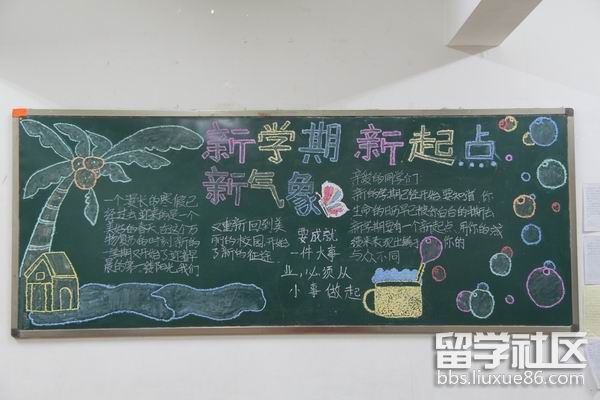 新学期 新起点
新气象
一个漫长的寒假已
经过去 迎来的是一个
美好的春天 在这个万
物复苏的时刻 新的
学期又开始了 迎着清
晨的第一缕阳光 我们
又重新回到美
丽的校园 开始
了新的征途
要成就
一件大事
业,必须从
小事做起
亲爱的同学们:
新的学期已经开始 要知道 你
新学期要有一个新起点 用你的
你的
与众不同
留学社区
bbs.liuxue86.com